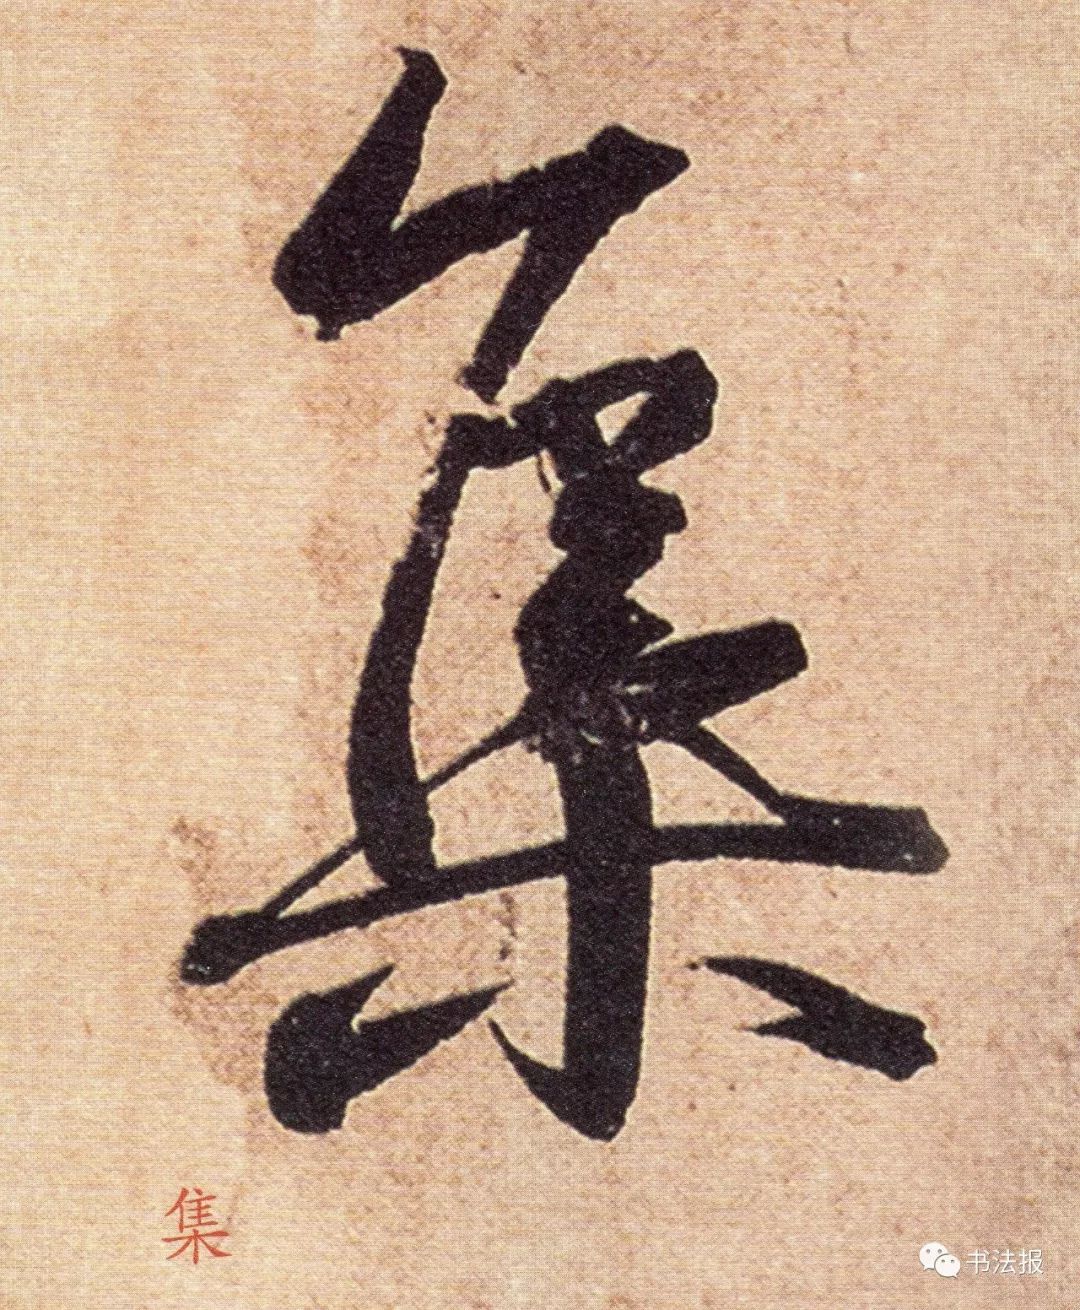 集
集
书法报